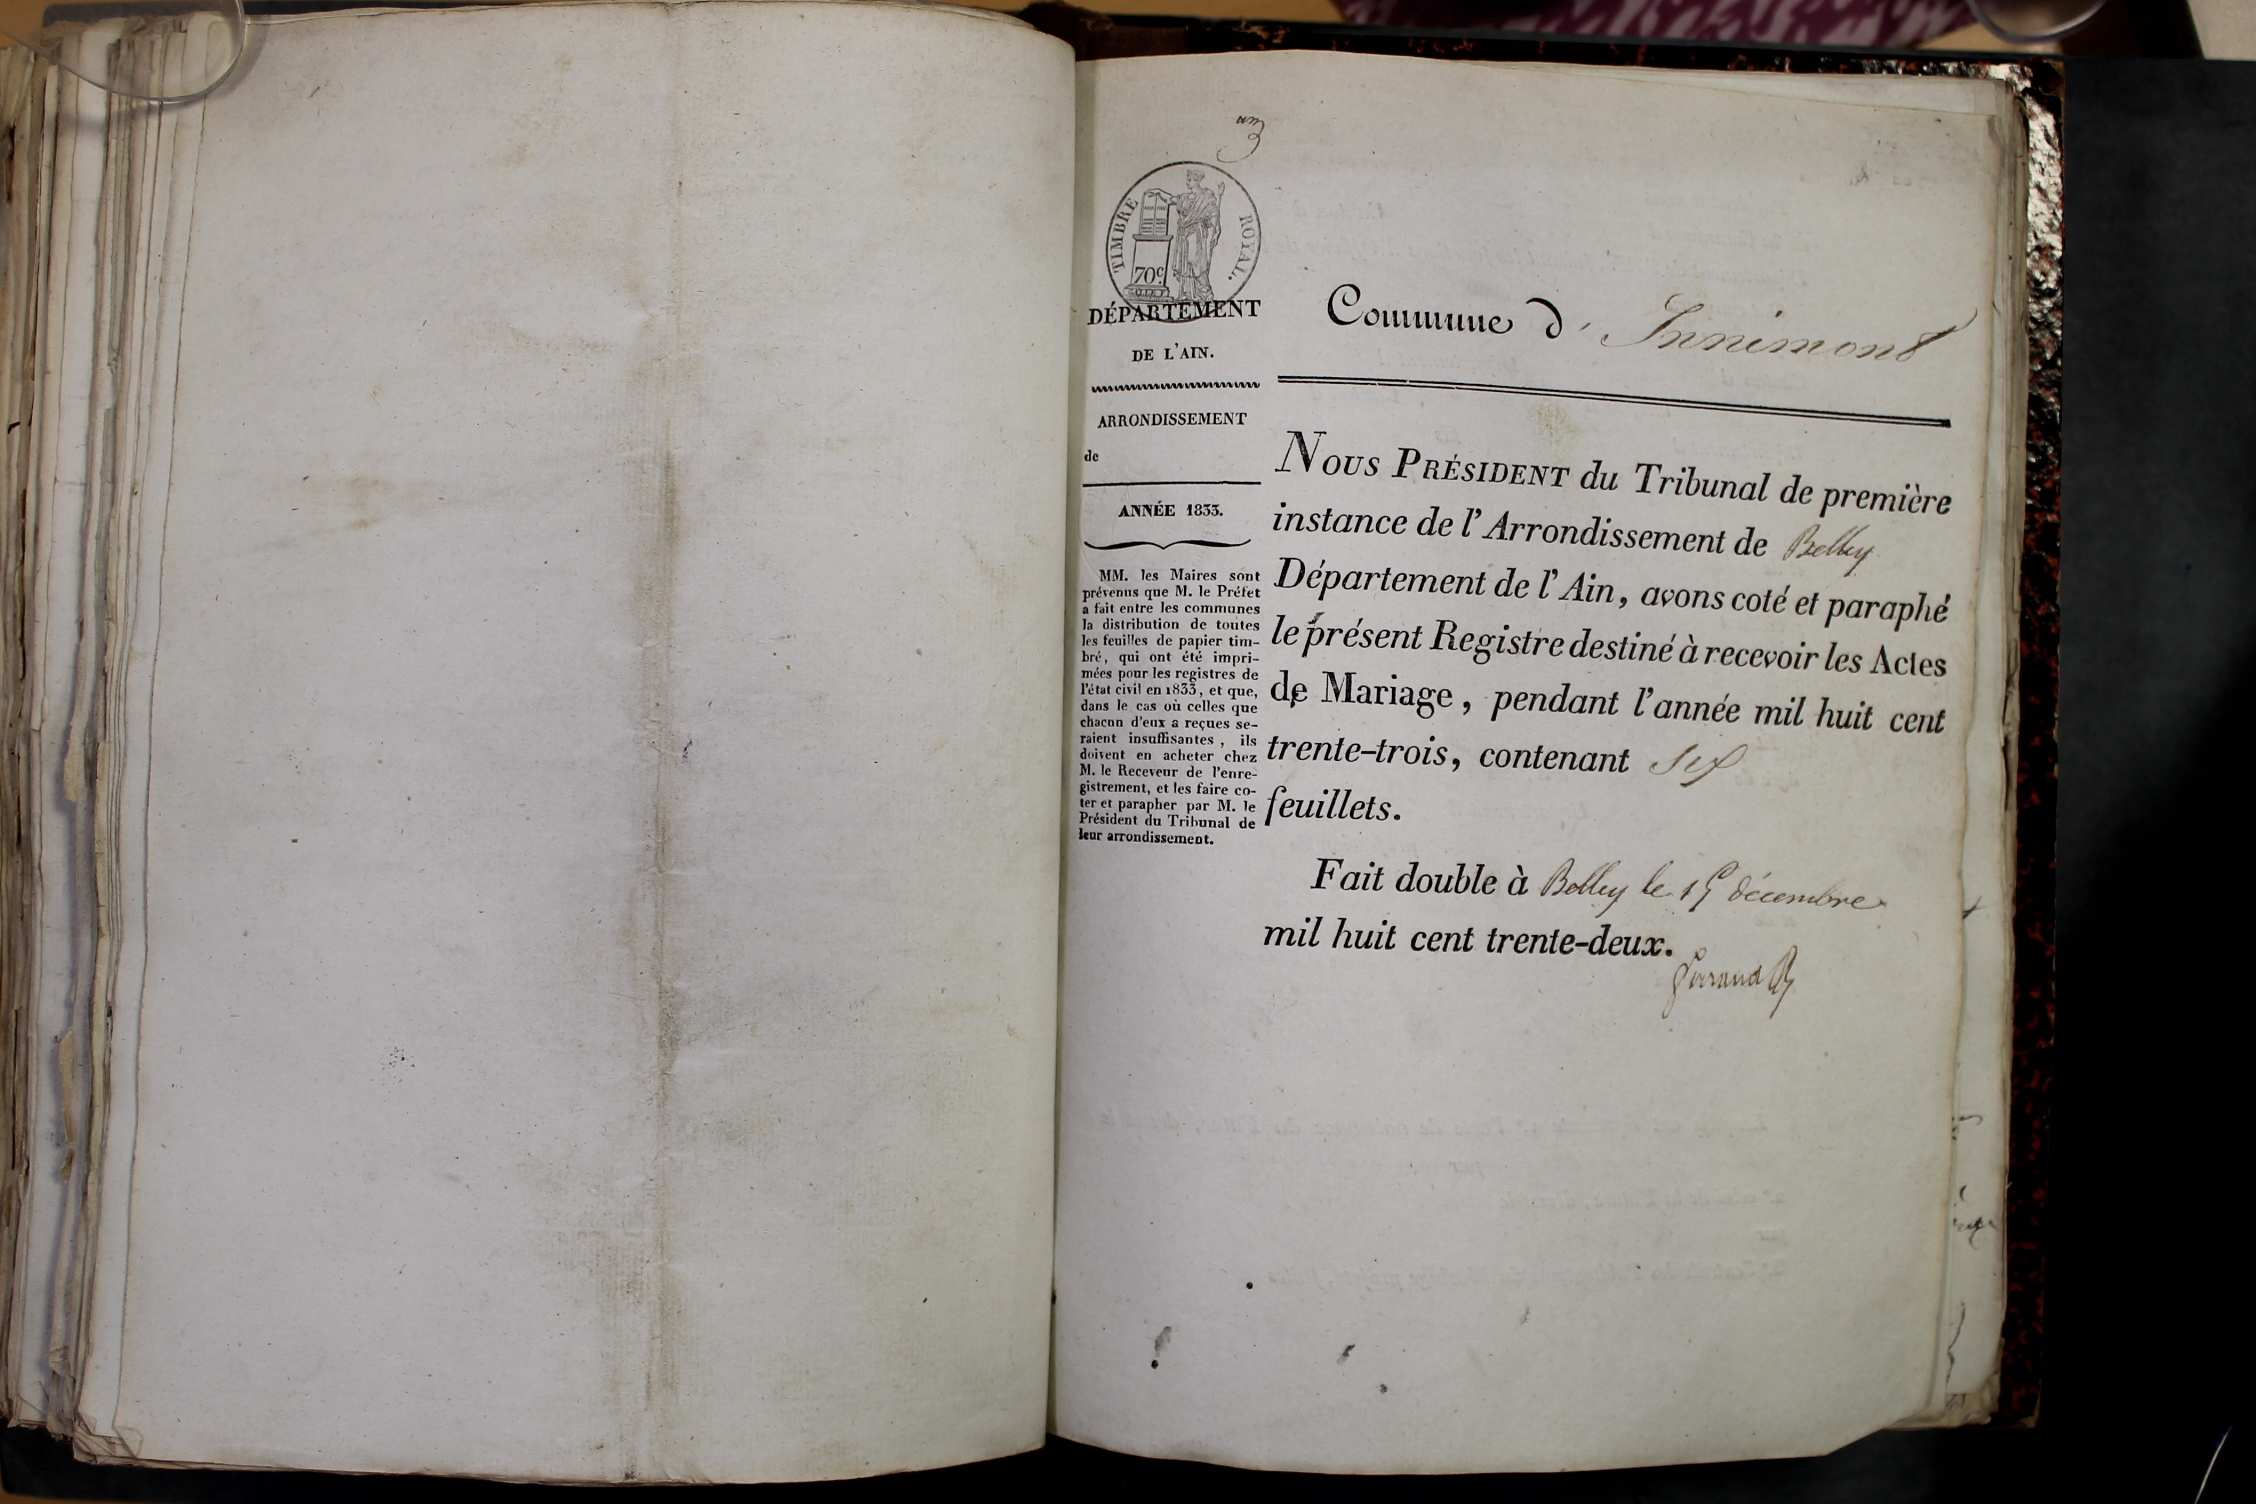 TIMBRE ROYAL.
70.c
DÉPARTEMENT
DE L'AIN.
ARRONDISSEMENT
de
ANNÉE 1833.
MM. les Maires sont
prévenus que M. le Préfet
a fait entre les communes
la distribution de toutes
les feuilles de papier tim-
bré, qui ont été impri-
mées pour les registres de
l'état civil en 1833, et que,
dans le cas où celles que
chacun d'eux a reçues se-
raient insuffisantes, ils
doivent en acheter chez
M. le Receveur de l'enre-
gistrement, et les faire co-
ter et parapher par M. le
Président du Tribunal de
leur arrondissement.
Commune d' Innimont
NOUS PRÉSIDENT du Tribunal de première
instance de l'Arrondissement de Belley
Département de l'Ain, avons coté et paraphé
le présent Registre destiné à recevoir les Actes
de Mariage, pendant l'année mil huit cent
trente-trois, contenant six
feuillets.
Fait double à Belley le 15 décembre
mil huit cent trente-deux.